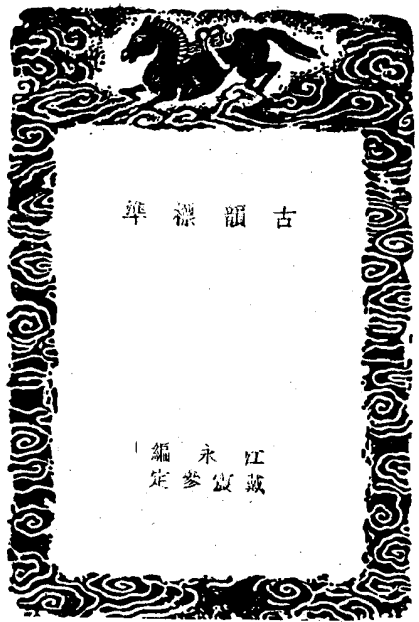 古韻標準
江永編
戴震參定